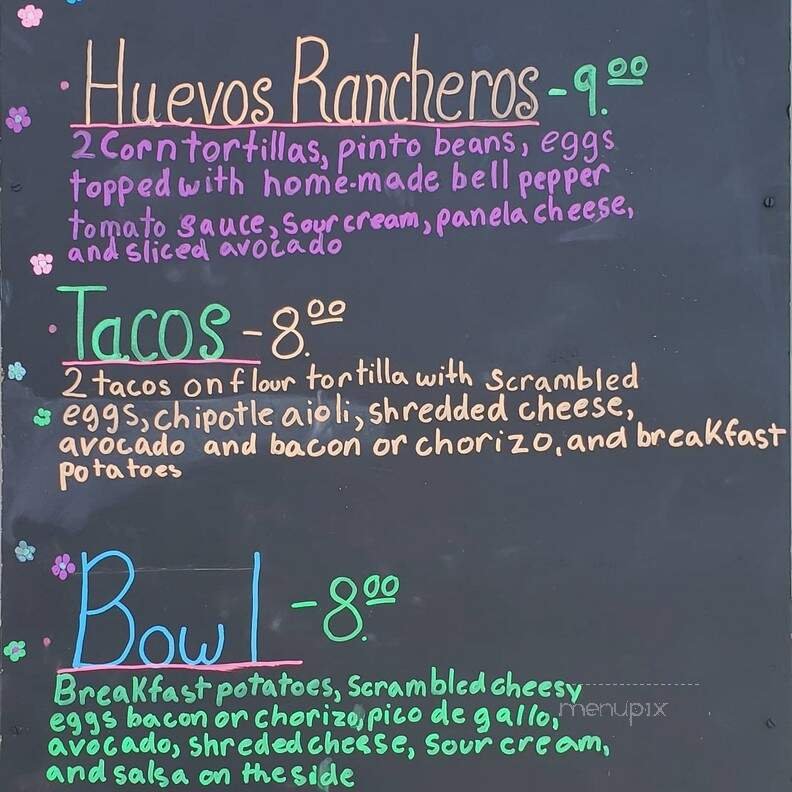 Huevos Rancheros - 9.00
2 Corn tortillas, pinto beans, eggs
topped with home-made bell pepper
tomato sauce, Sour cream, panela cheese,
and sliced avocado
Tacos - 8.00
2 tacos on flour tortilla with scrambled
eggs, chipotle aioli, shredded cheese,
avocado and bacon or chorizo, and breakfast
potatoes
Bowl - 8.00
Breakfast potatoes, Scrambled cheesy
eggs bacon or chorizo, pico de gallo,
avocado, shreded cheese, Sour cream,
and salsa on the side
menupix